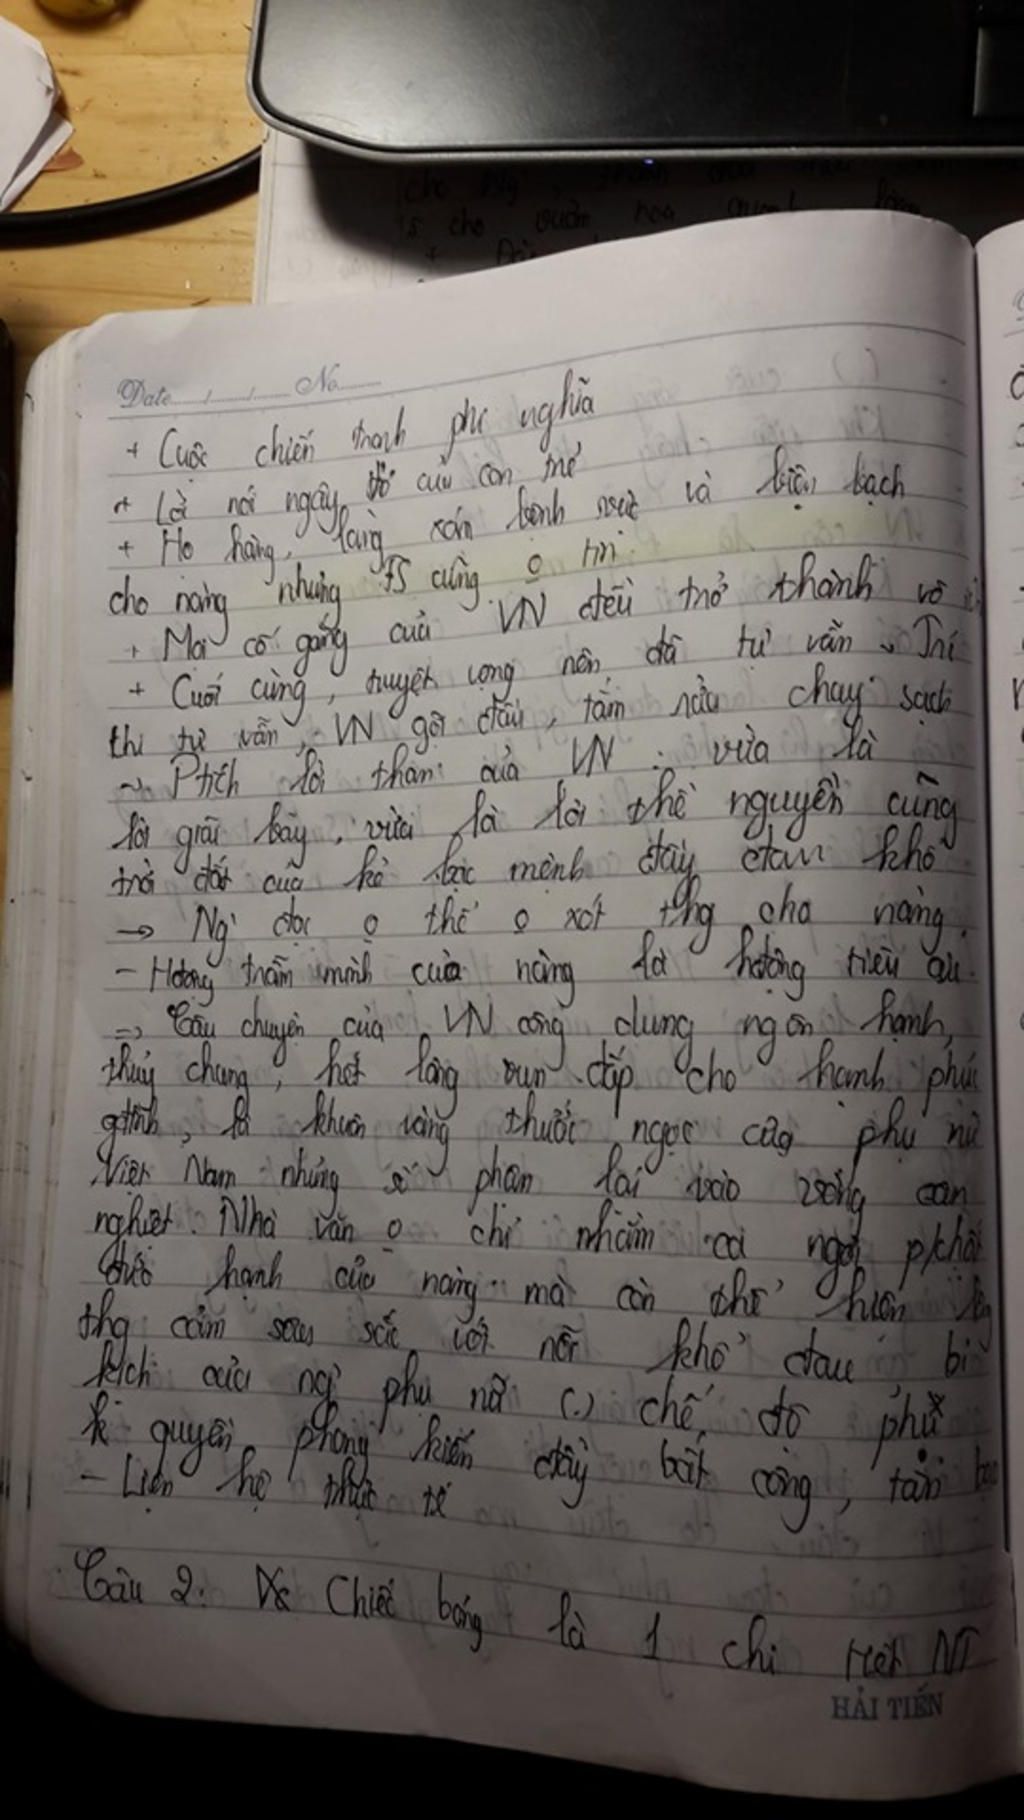 Date..../..../.... No........
+ Cuộc chiến tranh phi nghĩa
+ Lời nói ngây thơ của con trẻ
+ Họ hàng, làng xóm bênh vực và biện bạch
cho nàng nhưng TS cũng o tin
+ Mọi cố gắng của VN đều trở thành vô
+ Cuối cùng, tuyệt vọng nên đã tự vẫn. Trc
khi tự vẫn, VN gội đầu, tắm rửa chay sạch
→ Ptích lời than của VN: vừa là
lời giãi bày, vừa là lời thề nguyền cùng
trời đất của kẻ bạc mệnh đầy đau khổ
→ Ng' đọc o thể o xót thg cho nàng.
- Hđộng trẫm mình của nàng là hđộng tiêu
=> Câu chuyện của VN công dung ngôn hạnh,
thủy chung, hết lòng vun đắp cho hạnh phúc
gđình, là khuôn vàng thước ngọc của phụ nữ
Việt Nam nhưng số phận lại vào vòng oan
nghiệt. Nhà văn o chỉ nhằm ca ngợi p/chất
đức hạnh của nàng mà còn thể hiện
thg cảm sâu sắc với nỗi khổ đau, bi
kịch của ng' phụ nữ (.) chế độ phụ
quyền phong kiến đầy bất công, tàn
- Liên hệ thực tế
Câu 2. Chiếc bóng là 1 chi tiết NT
HẢI TIẾN